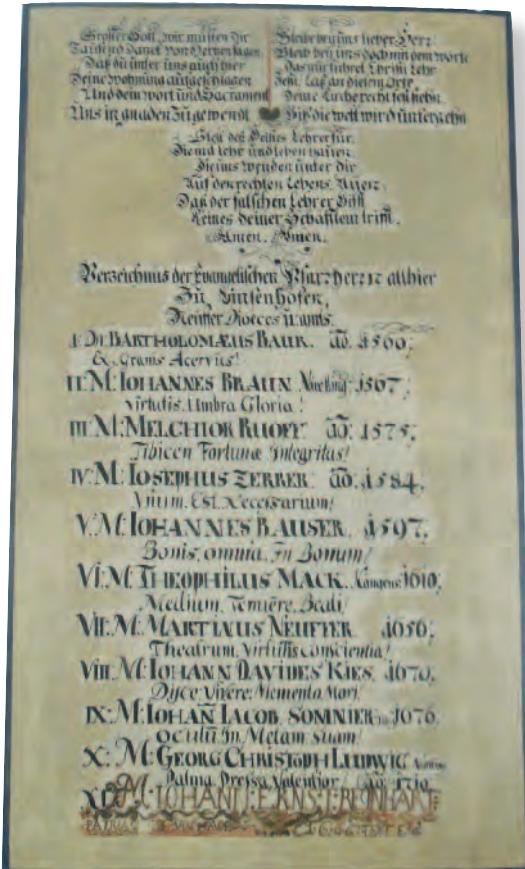 Grosser Gott, wir müssen dir
Tausend Danck von Hertzen sagen
Daß du unter uns auch hier
Deine Wohnung aufgeschlagen
Und dein wort und Sacrament
Uns in gnaden zugewendt
Bleib bey uns lieber Herr
Bleib bey uns doch mit dem worte
Das nur führet Christi Lehr
Jesu, laß an diesem Orte
Deine Kirche recht stehn
Biß die welt wird untergehn
deß Geistes Lehrer für,
Die und leben bauen,
Die uns weyden unter dir
Auf der rechten Lebens Auen,
Daß der falschen Lehrer Gifft
Keines deiner Schäfflein trifft.
Amen. Amen.
Verzeichnus der Evangelischen Pfarrherrn allhier
Zu
Neuffer Dioeces u. amts.
I. BARTHOLOMÆUS BAUR. aõ. 1560;
Ex Granis Acervus!
II. M: IOHANNES BRAUN 1567;
Virtutis Umbra Gloria!
III. M: MELCHIOR RUOFF. aõ: 1575;
Tibicen Fortunæ Integritas!
IV. M: IOSEPHUS ZERRER. aõ. 1584.
Unum. Est. Necessarium!
V. M: IOHANNES BAUSER. 1597.
Bonis, omnia. In Bonum!
VI: M: THEOPHILUS MACK. 1610;
Medium. Beati!
VII: M: MARTINUS NEUFFER. 1656;
Theatrum. Virtutis Conscientia!
VIII: M: IOHANN DAVIDES KIES. 1670.
Disce Vivere: Memento Mori!
IX: M: IOHAÑ IACOB. SOMNIER 1676.
Oculū In Metam. suam!
X: M: GEORG CHRISTOPH LUDWIG
Palma Pressa Valentior! aõ: 1710.
XI. M. IOHAN ERNST REINHART:
PATRIA